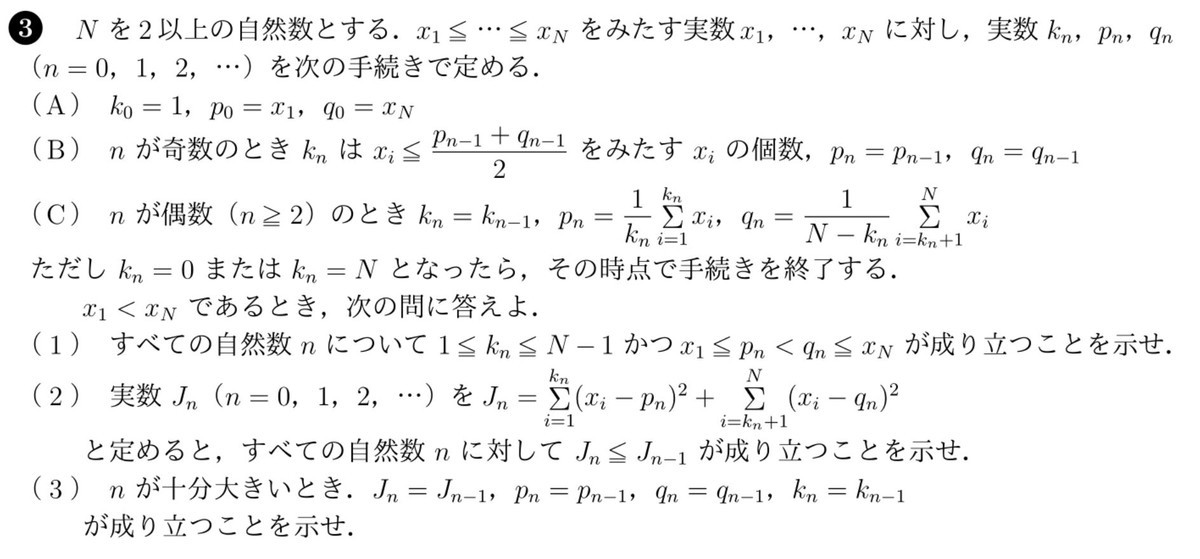 ❸ N を2以上の自然数とする．x₁≦…≦x_N をみたす実数x₁，…，x_N に対し，実数 kₙ，pₙ，qₙ
（n=0，1，2，…）を次の手続きで定める．
（A） k₀=1，p₀=x₁，q₀=x_N
（B） n が奇数のとき kₙ は xᵢ≦\frac{p_{n-1}+q_{n-1}}{2} をみたす xᵢ の個数，pₙ=p_{n-1}，qₙ=q_{n-1}
（C） n が偶数（n≧2）のとき kₙ=k_{n-1}，pₙ=\frac{1}{kₙ}\sum_{i=1}^{kₙ}xᵢ，qₙ=\frac{1}{N-kₙ}\sum_{i=kₙ+1}^{N}xᵢ
ただし kₙ=0 または kₙ=N となったら，その時点で手続きを終了する．
x₁<x_N であるとき，次の問に答えよ．
（1） すべての自然数 n について 1≦kₙ≦N-1 かつ x₁≦pₙ<qₙ≦x_N が成り立つことを示せ．
（2） 実数 Jₙ（n=0，1，2，…）を Jₙ=\sum_{i=1}^{kₙ}(xᵢ-pₙ)²+\sum_{i=kₙ+1}^{N}(xᵢ-qₙ)²
と定めると，すべての自然数 n に対して Jₙ≦J_{n-1} が成り立つことを示せ．
（3） n が十分大きいとき．Jₙ=J_{n-1}，pₙ=p_{n-1}，qₙ=q_{n-1}，kₙ=k_{n-1}
が成り立つことを示せ．